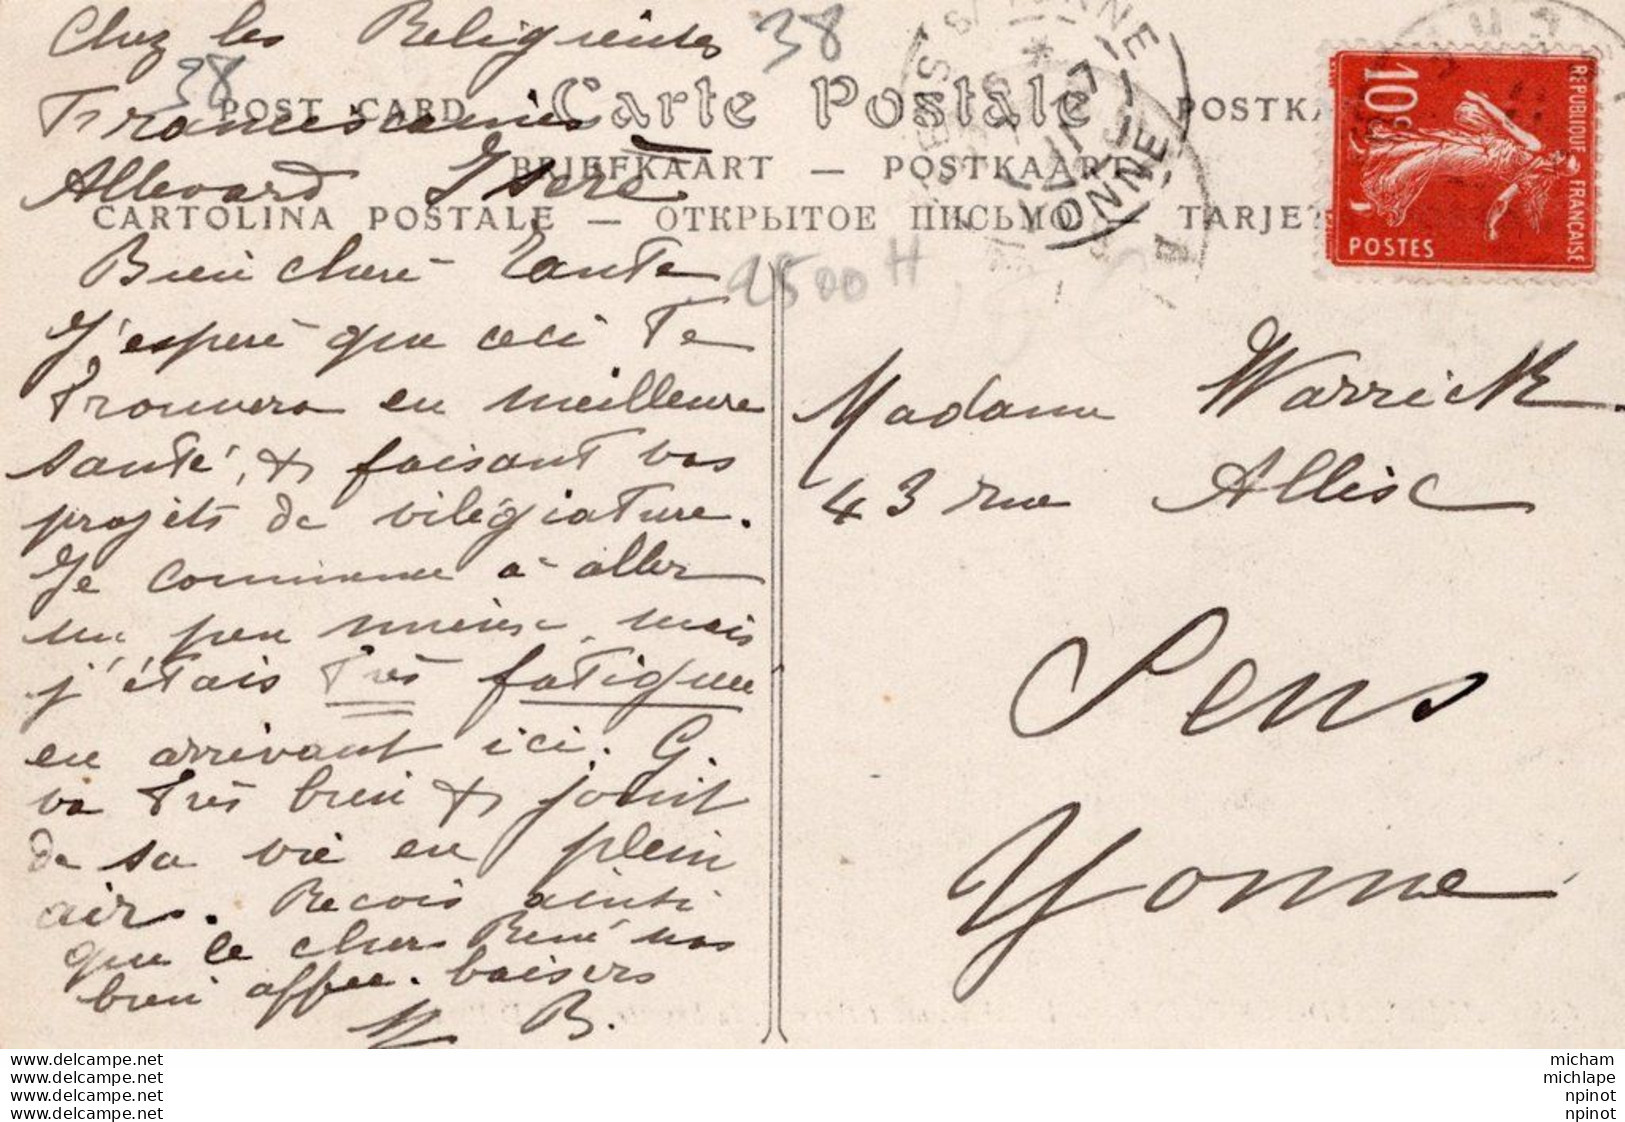 Chez les Religieuses
38
38
Franciscaines
POST CARD Carte Postale POSTKA
Allevard Isère
BRIEFKAART — POSTKAART
CARTOLINA POSTALE — ОТКРЫТОЕ ПИСЬМО — TARJE
10c
REPUBLIQUE FRANÇAISE
POSTES
SENS YONNE
YONNE
Bien chère Tante
2500 H
J'espère que ceci te
trouvera en meilleure
santé, & faisant vos
projets de vilégiature.
Je commence à aller
un peu mieux, mais
j'étais très fatiguée
en arrivant ici. G.
va très bien & jouit
de sa vie en plein
air. Reçois ainsi
que le cher René nos
bien affee. baisers
M B.
Madame Warrick
43 rue Allix
Sens
Yonne
www.delcampe.net
www.delcampe.net
www.delcampe.net
www.delcampe.net
micham
michlape
npinot
npinot